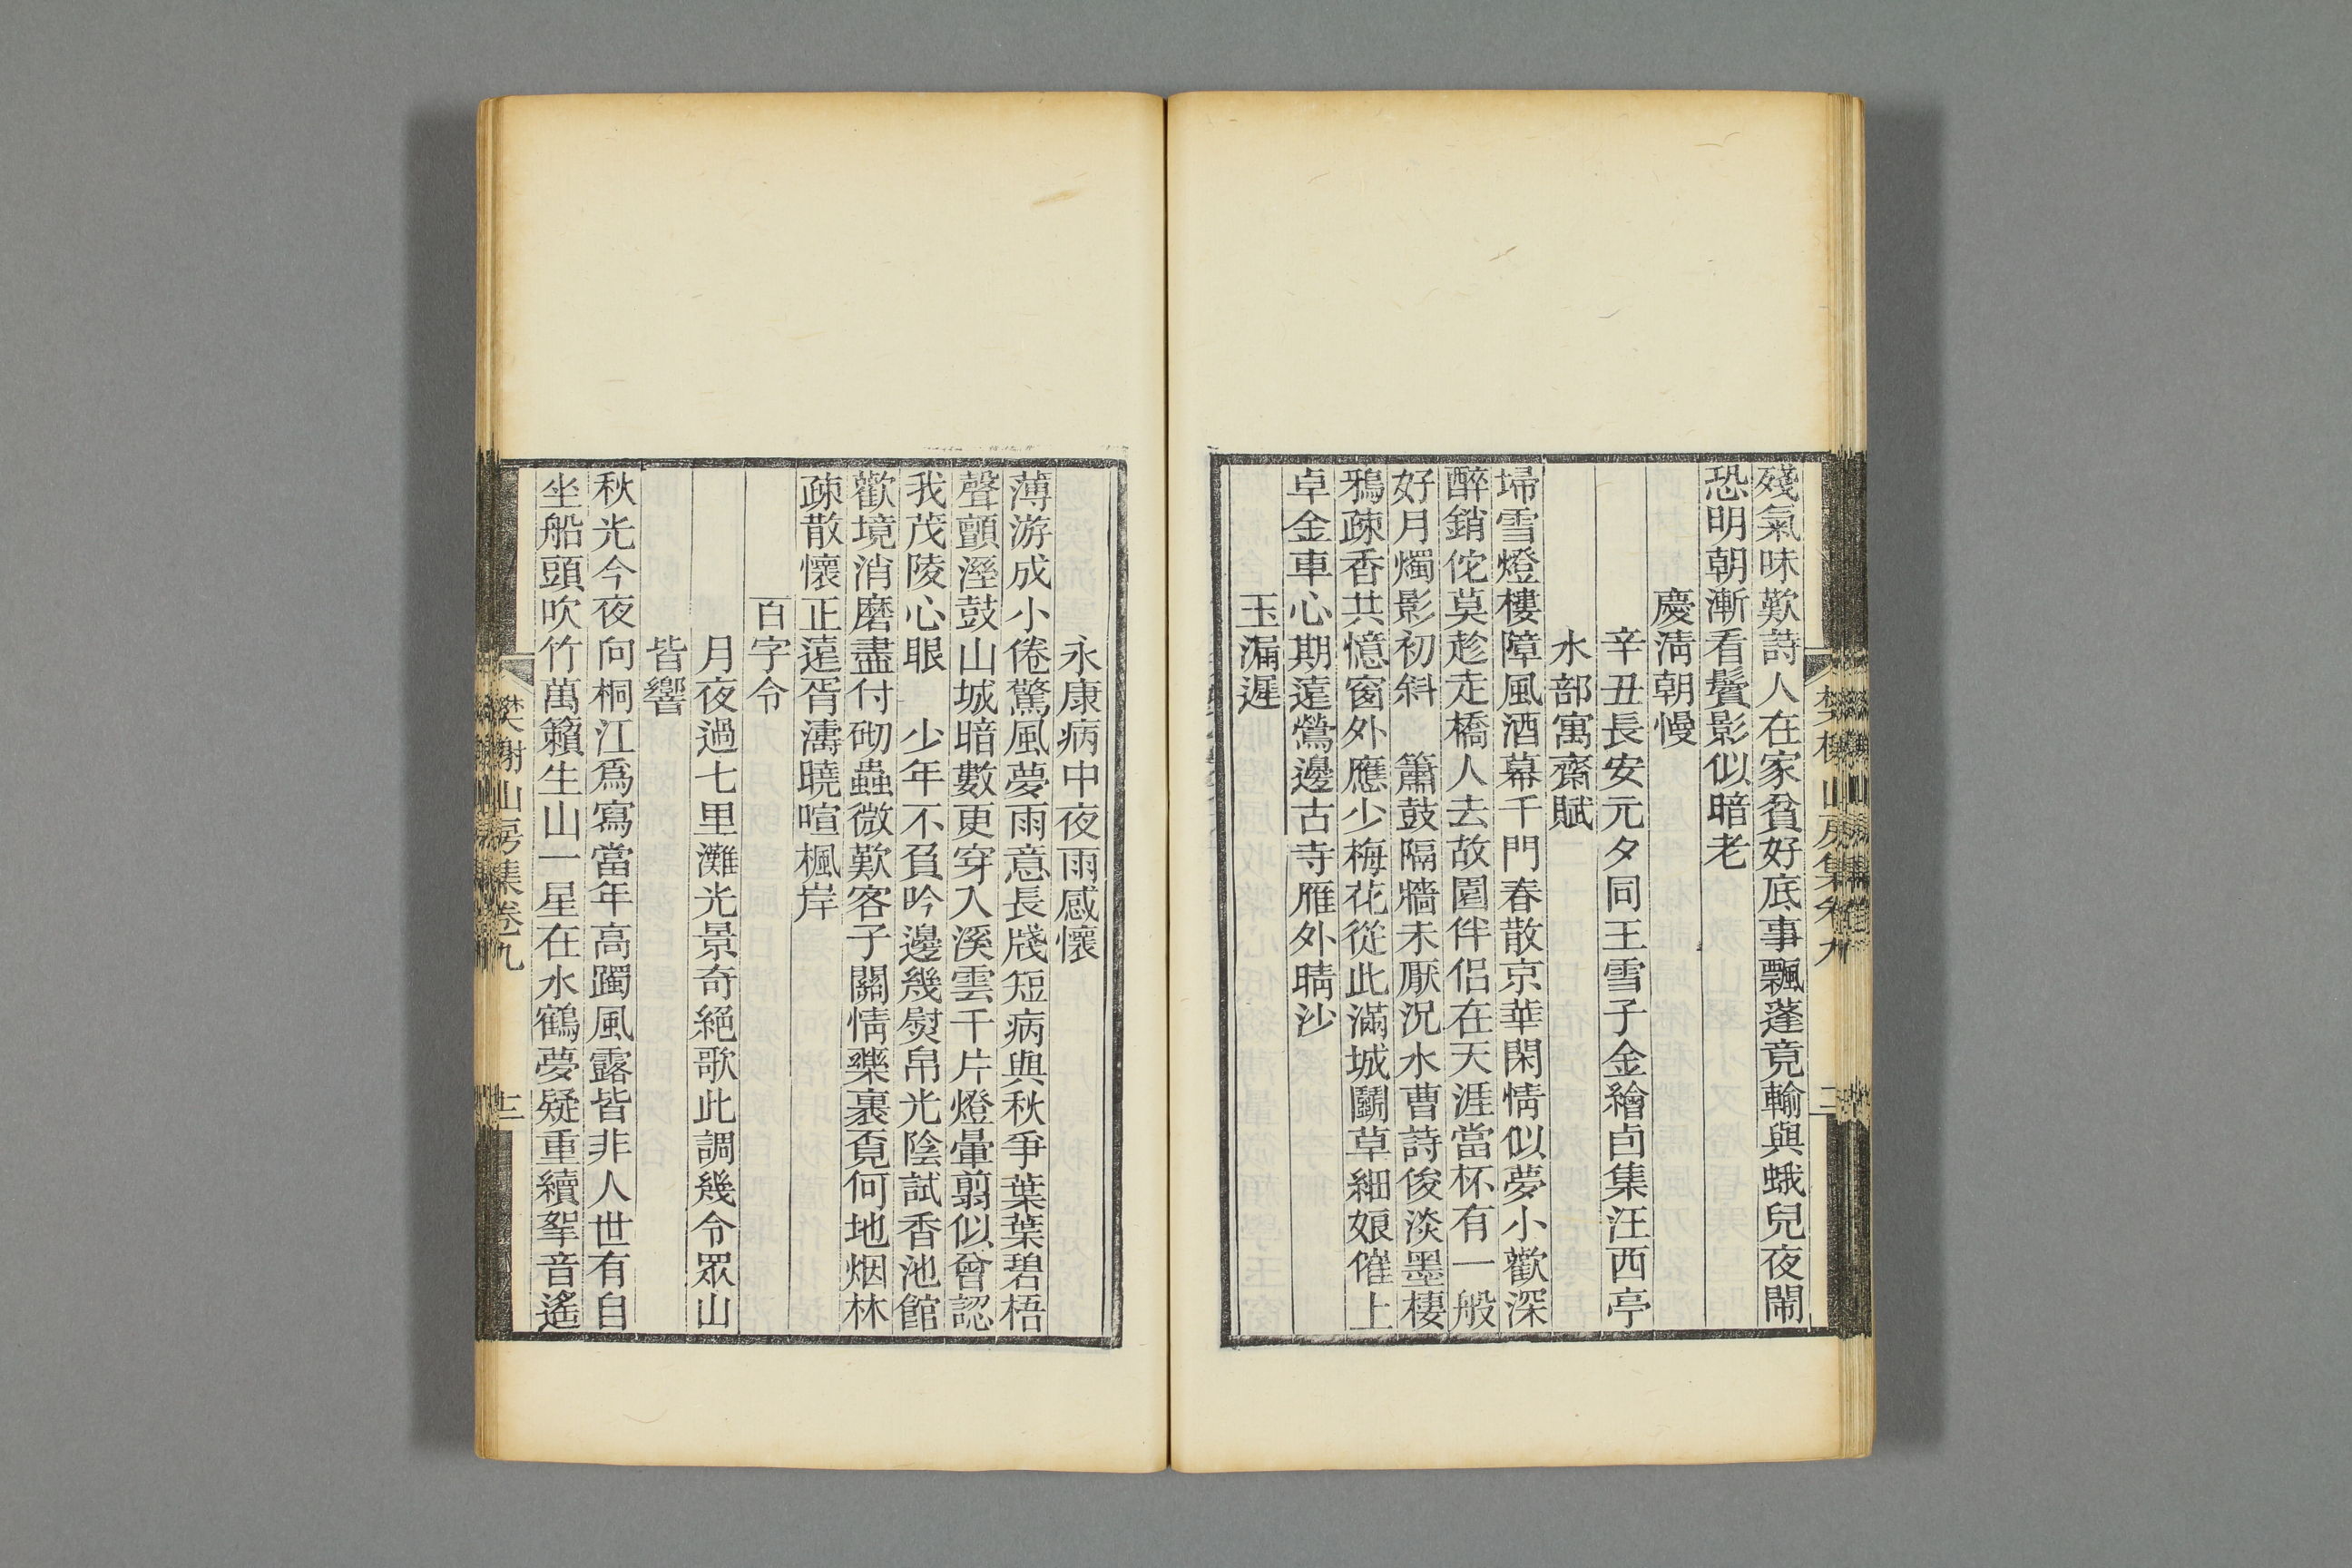 殘氣味歎詩人在家貧好底事飄蓬竟輸與蛾兒夜鬧
恐明朝漸看鬢影似暗老
慶淸朝慢
辛丑長安元夕同王雪子金繪卣集汪西亭
水部寓齋賦
埽雪燈樓障風酒幕千門春散京華閑情似夢小歡深
醉銷佗莫趁走橋人去故園伴侶在天涯當杯有一般
好月燭影初斜　簫鼓隔牆未厭況水曹詩俊淡墨棲
鴉疎香共憶窗外應少梅花從此滿城鬭草細娘催上
卓金車心期遠鶯邊古寺雁外晴沙
玉漏遲
樊榭山房集卷九
二
永康病中夜雨感懷
薄游成小倦驚風夢雨意長牋短病與秋爭葉葉碧梧
聲顫溼鼓山城暗數更穿入溪雲千片燈暈翦似曾認
我茂陵心眼　少年不負吟邊幾熨帛光陰試香池館
歡境消磨盡付砌蟲微歎客子關情藥裹覓何地烟林
疎散懷正遠胥濤曉喧楓岸
百字令
月夜過七里灘光景奇絕歌此調幾令眾山
皆響
秋光今夜向桐江爲寫當年高躅風露皆非人世有自
坐船頭吹竹萬籟生山一星在水鶴夢疑重續拏音遙
樊榭山房集卷九